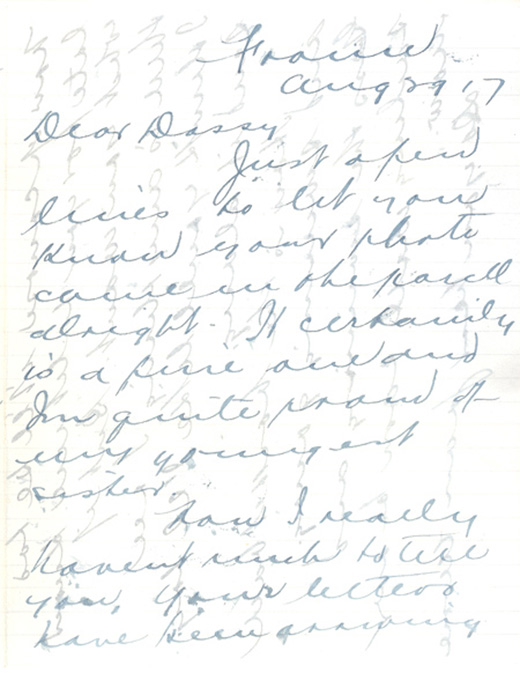 France
Aug 29 17
Dear Dassy
Just a few
lines to let you
know your photo
came in the parcel
alright. It certainly
is a fine one and
Im quite proud of
my youngest
sister.
Now I really
havent much to tell
you, your letters
have been arriving